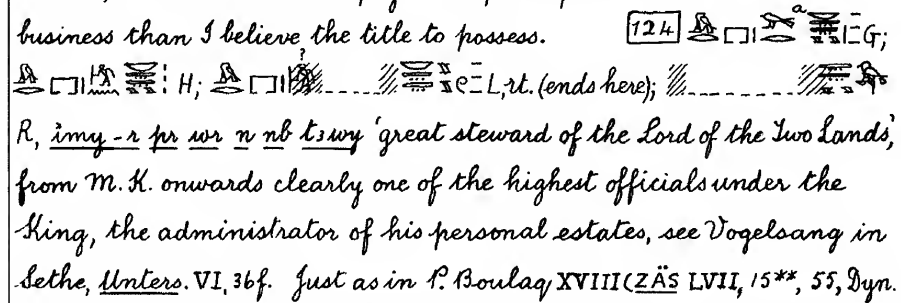 business than I believe the title to possess. [124] G;
H; L, rt. (ends here);
R, ἰmy-r pr wr n nb tꜣwy 'great steward of the Lord of the Two Lands',
from M.K. onwards clearly one of the highest officials under the
King, the administrator of his personal estates, see Vogelsang in
Sethe, Unters. VI, 36f. Just as in P. Boulaq XVIII (ZÄS LVII, 15**, 55, Dyn.